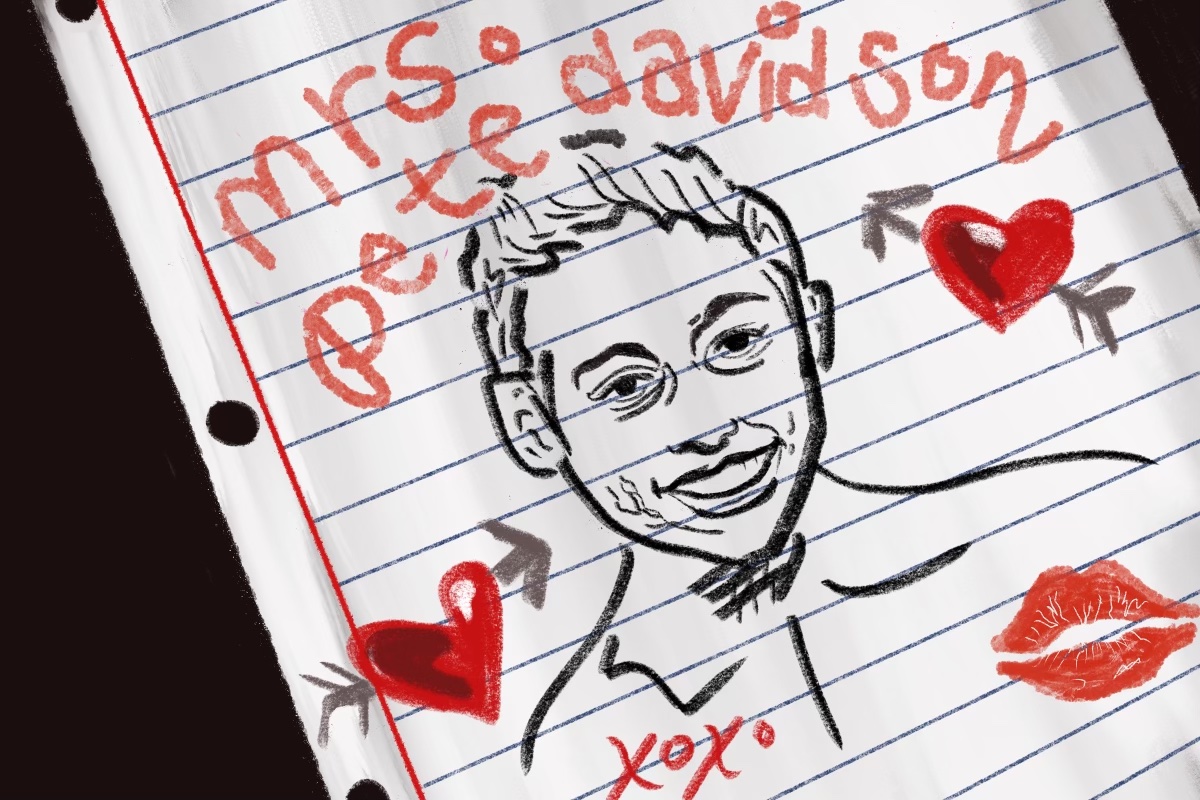 mrs.
pete davidson
xoxo